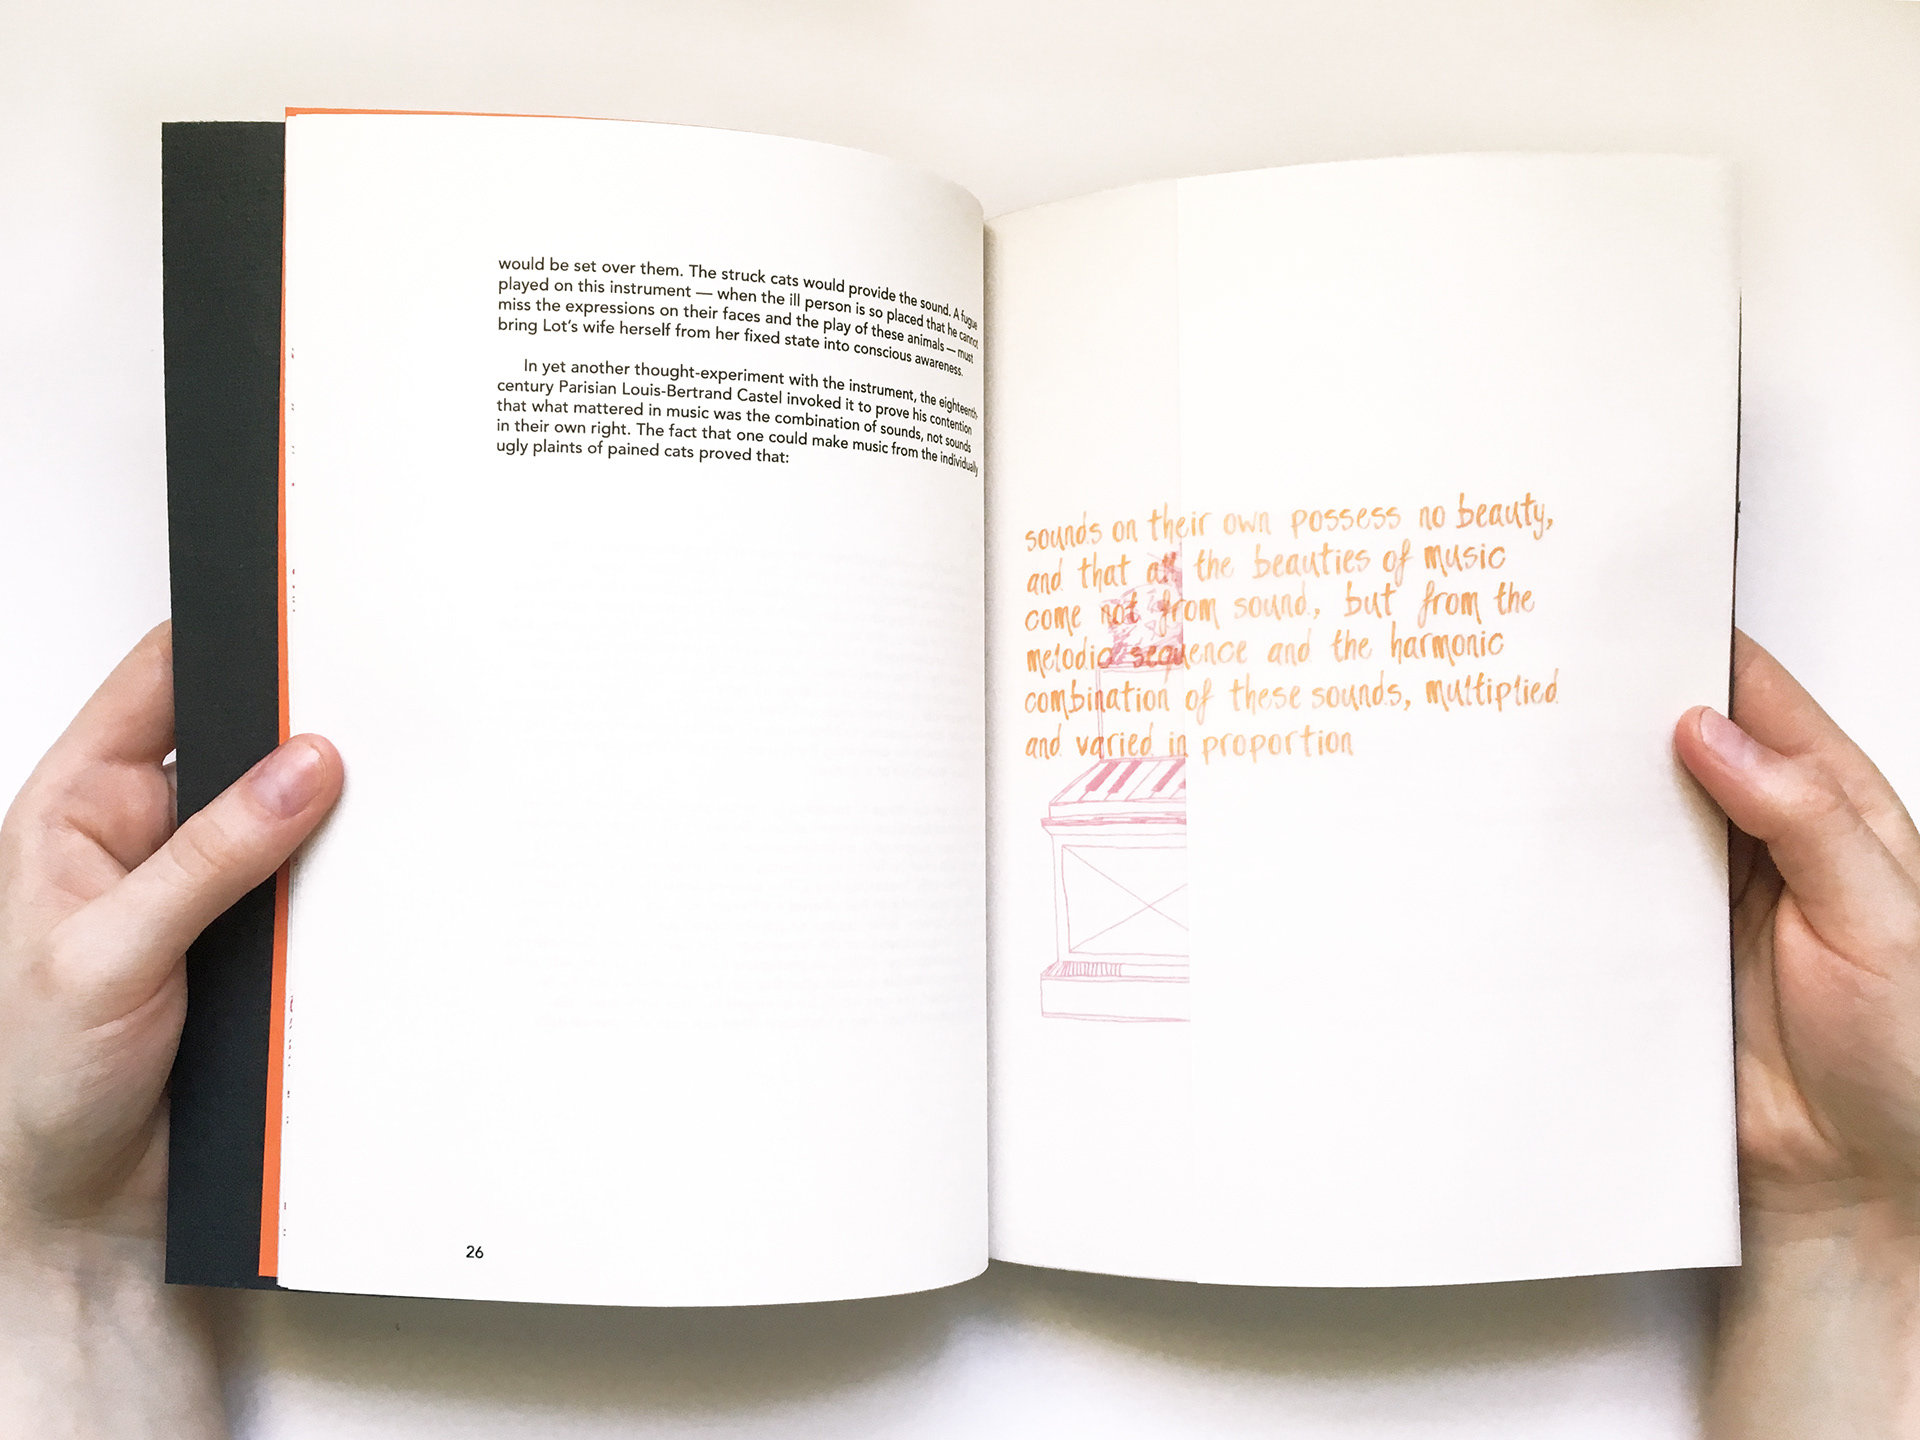 would be set over them. The struck cats would provide the sound. A fugue
played on this instrument — when the ill person is so placed that he cannot
miss the expressions on their faces and the play of these animals — must
bring Lot's wife herself from her fixed state into conscious awareness.
In yet another thought-experiment with the instrument, the eighteenth-
century Parisian Louis-Bertrand Castel invoked it to prove his contention
that what mattered in music was the combination of sounds, not sounds
in their own right. The fact that one could make music from the individually
ugly plaints of pained cats proved that:
26
sounds on their own possess no beauty,
and that all the beauties of music
come not from sound, but from the
melodic sequence and the harmonic
combination of these sounds, multiplied
and varied in proportion